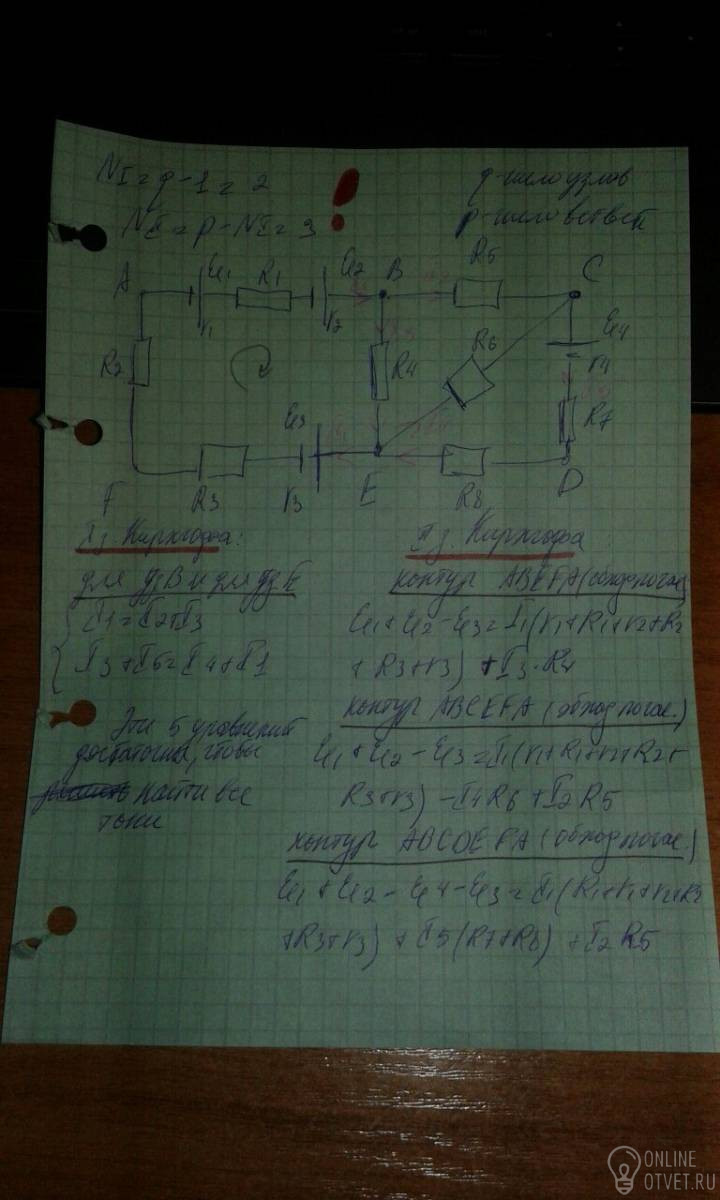 NI = q - 1 = 2
q - число узлов
NII = p - NI = 3
p - число ветвей
!
A
Ɛ1
R1
Ɛ2
B
R5
C
r1
r2
R2
R4
R6
Ɛ4
r4
R7
Ɛ3
F
R3
r3
E
R8
D
I з. Кирхгофа:
для уз B и для уз E
I1 = I2 + I3
I3 + I5 = I4 + I1
Эти 5 уравнений
достаточно, чтобы
найти все
токи
II з. Кирхгофа
контур ABEFA (обход по час.)
Ɛ1 + Ɛ2 - Ɛ3 = I1(r1 + R1 + r2 + R2
+ R3 + r3) + I3·R4
контур ABCEFA (обход по час.)
Ɛ1 + Ɛ2 - Ɛ3 = I1(r1 + R1 + r2 + R2 +
R3 + r3) - I4R6 + I2R5
контур ABCDEFA (обход по час.)
Ɛ1 + Ɛ2 - Ɛ4 - Ɛ3 = I1(R1 + r1 + r2 + R2
+ R3 + r3) + I5(R7 + R8) + I2R5
ONLINE
OTVET.RU